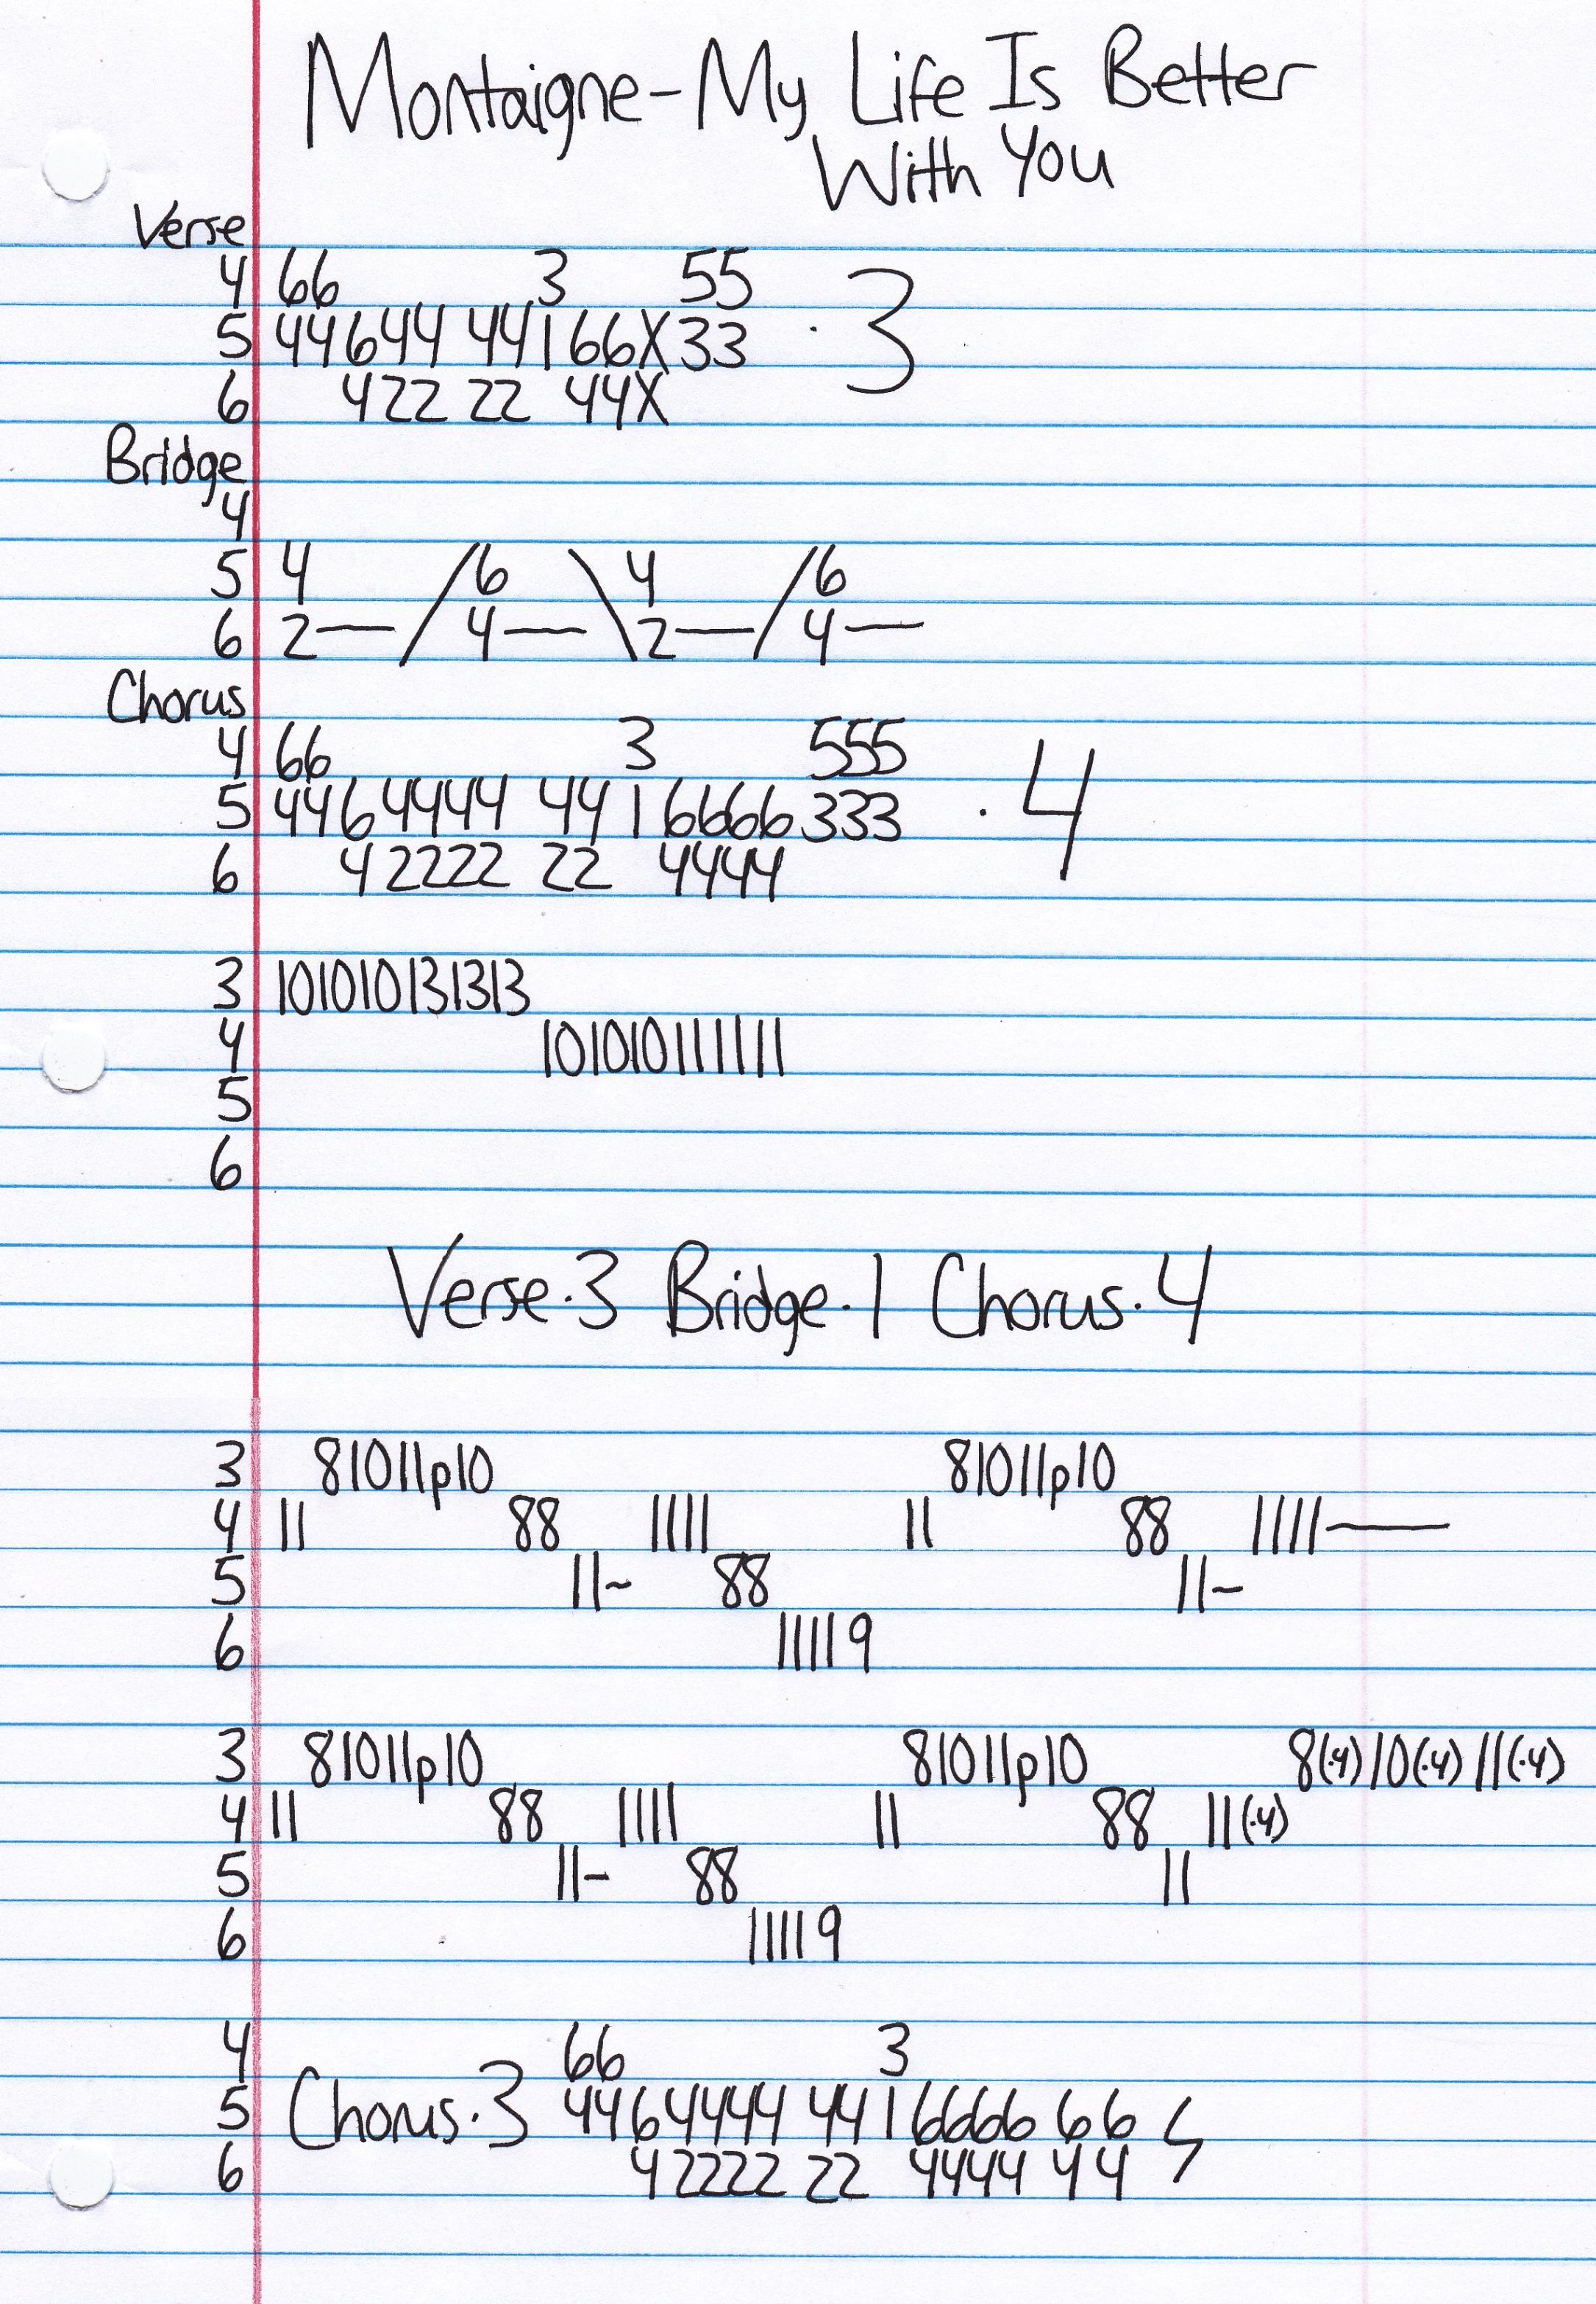 Montaigne-My Life Is Better
With You
Verse
4 66 3 55
5 44644 44166X33 · 3
6 422 22 44X
Bridge
4
5 4 /6 \4 /6
6 2— 4— 2— 4—
Chorus
4 66 3 555
5 4464444 4416666333 · 4
6 42222 22 4444
3 101010131313
4 101010111111
5
6
Verse·3 Bridge·1 Chorus·4
3 81011p10 81011p10
4 11 88 1111 11 88 1111—
5 11~ 88 11~
6 11119
3 81011p10 81011p10 8(·4)10(·4)11(·4)
4 11 88 1111 11 88 11(·4)
5 11- 88 11
6 11119
4 66 3
5 Chorus·3 4464444 4416666 66
6 42222 22 4444 44